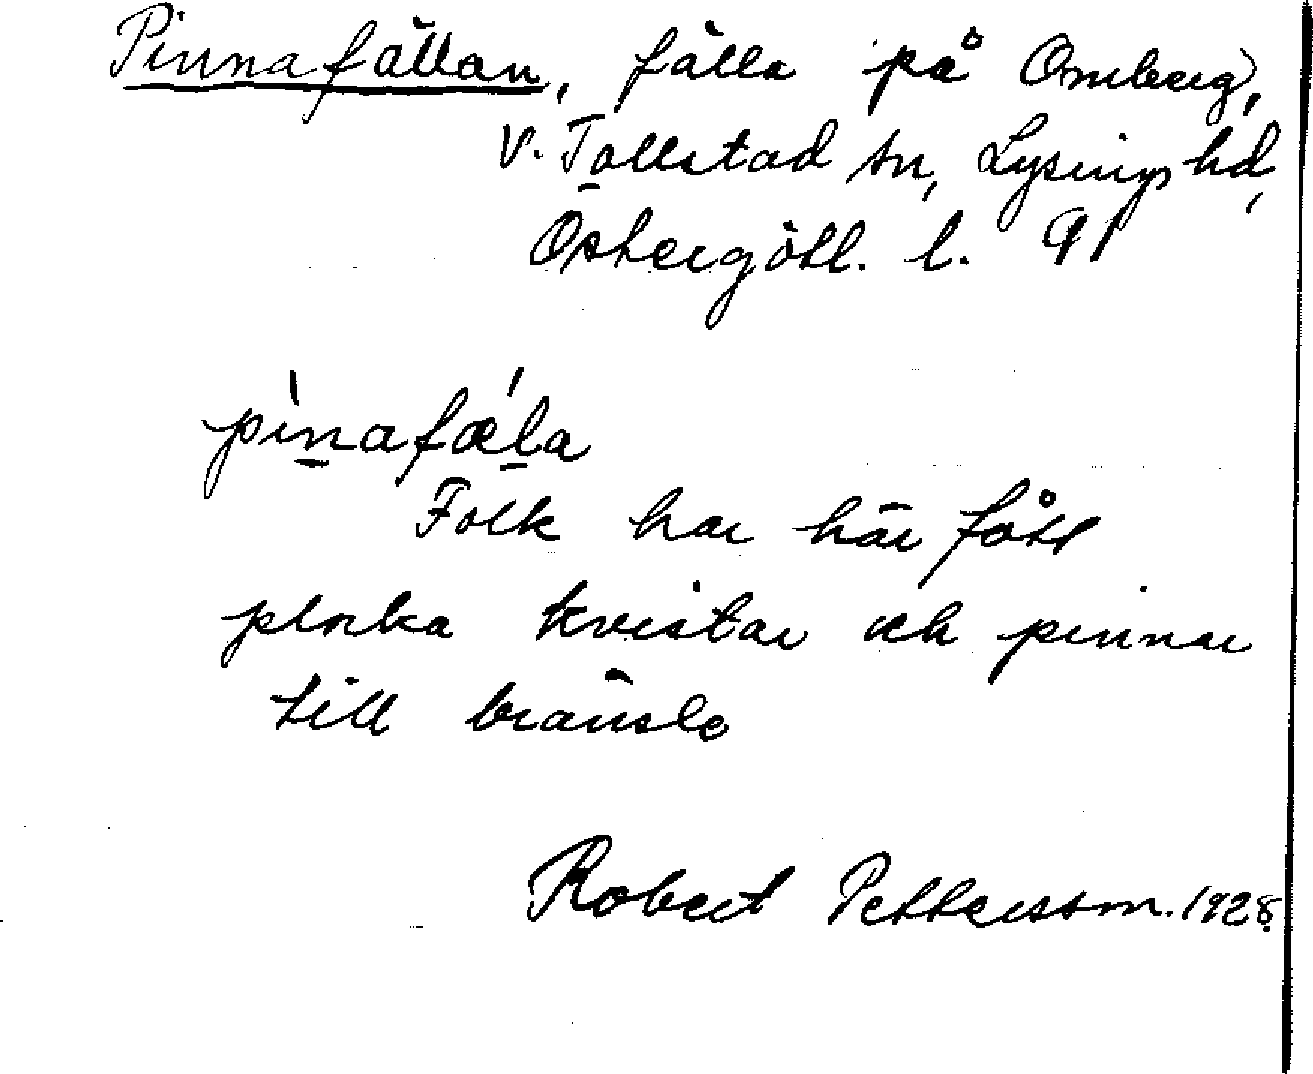 Pinnafällan, fälla på Omberg,
V. Tollstad sn, Lysings hd,
Östergötl. l. 91
pìnafǽla
Folk har här fått
plocka kvistar och pinnar
till bränsle
Robert Pettersson. 1928.